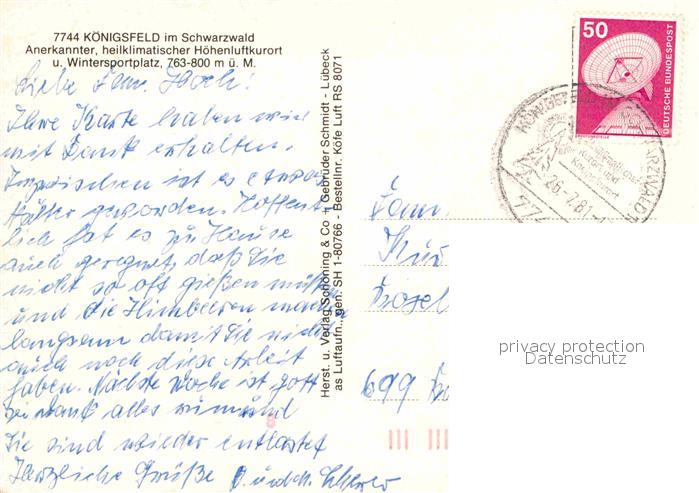 7744 KÖNIGSFELD im Schwarzwald
Anerkannter, heilklimatischer Höhenluftkurort
u. Wintersportplatz, 763-800 m ü. M.
Liebe Fam. Hoch!
Ihre Karte haben wir
mit Dank erhalten.
Inzwischen ist es etwas
kälter geworden. Hoffent
lich hat es zu Hause
auch geregnet, daß Sie
nicht so oft gießen müssen
und die Himbeeren machen
langsam damit Sie nicht
auch noch diese Arbeit
haben. Nächste Woche ist Gott
sei Dank alles rum und
Sie sind wieder entlastet
Herzliche Grüße
Herst. u. Verlag Schöning & Co + Gebrüder Schmidt - Lübeck
as Luftaufn., gen. SH 1-80766 - Bestellnr. Köfe Luft RS 8071
50
DEUTSCHE BUNDESPOST
26.-7.81-1
774
Fam
Kur
699
privacy protection
Datenschutz